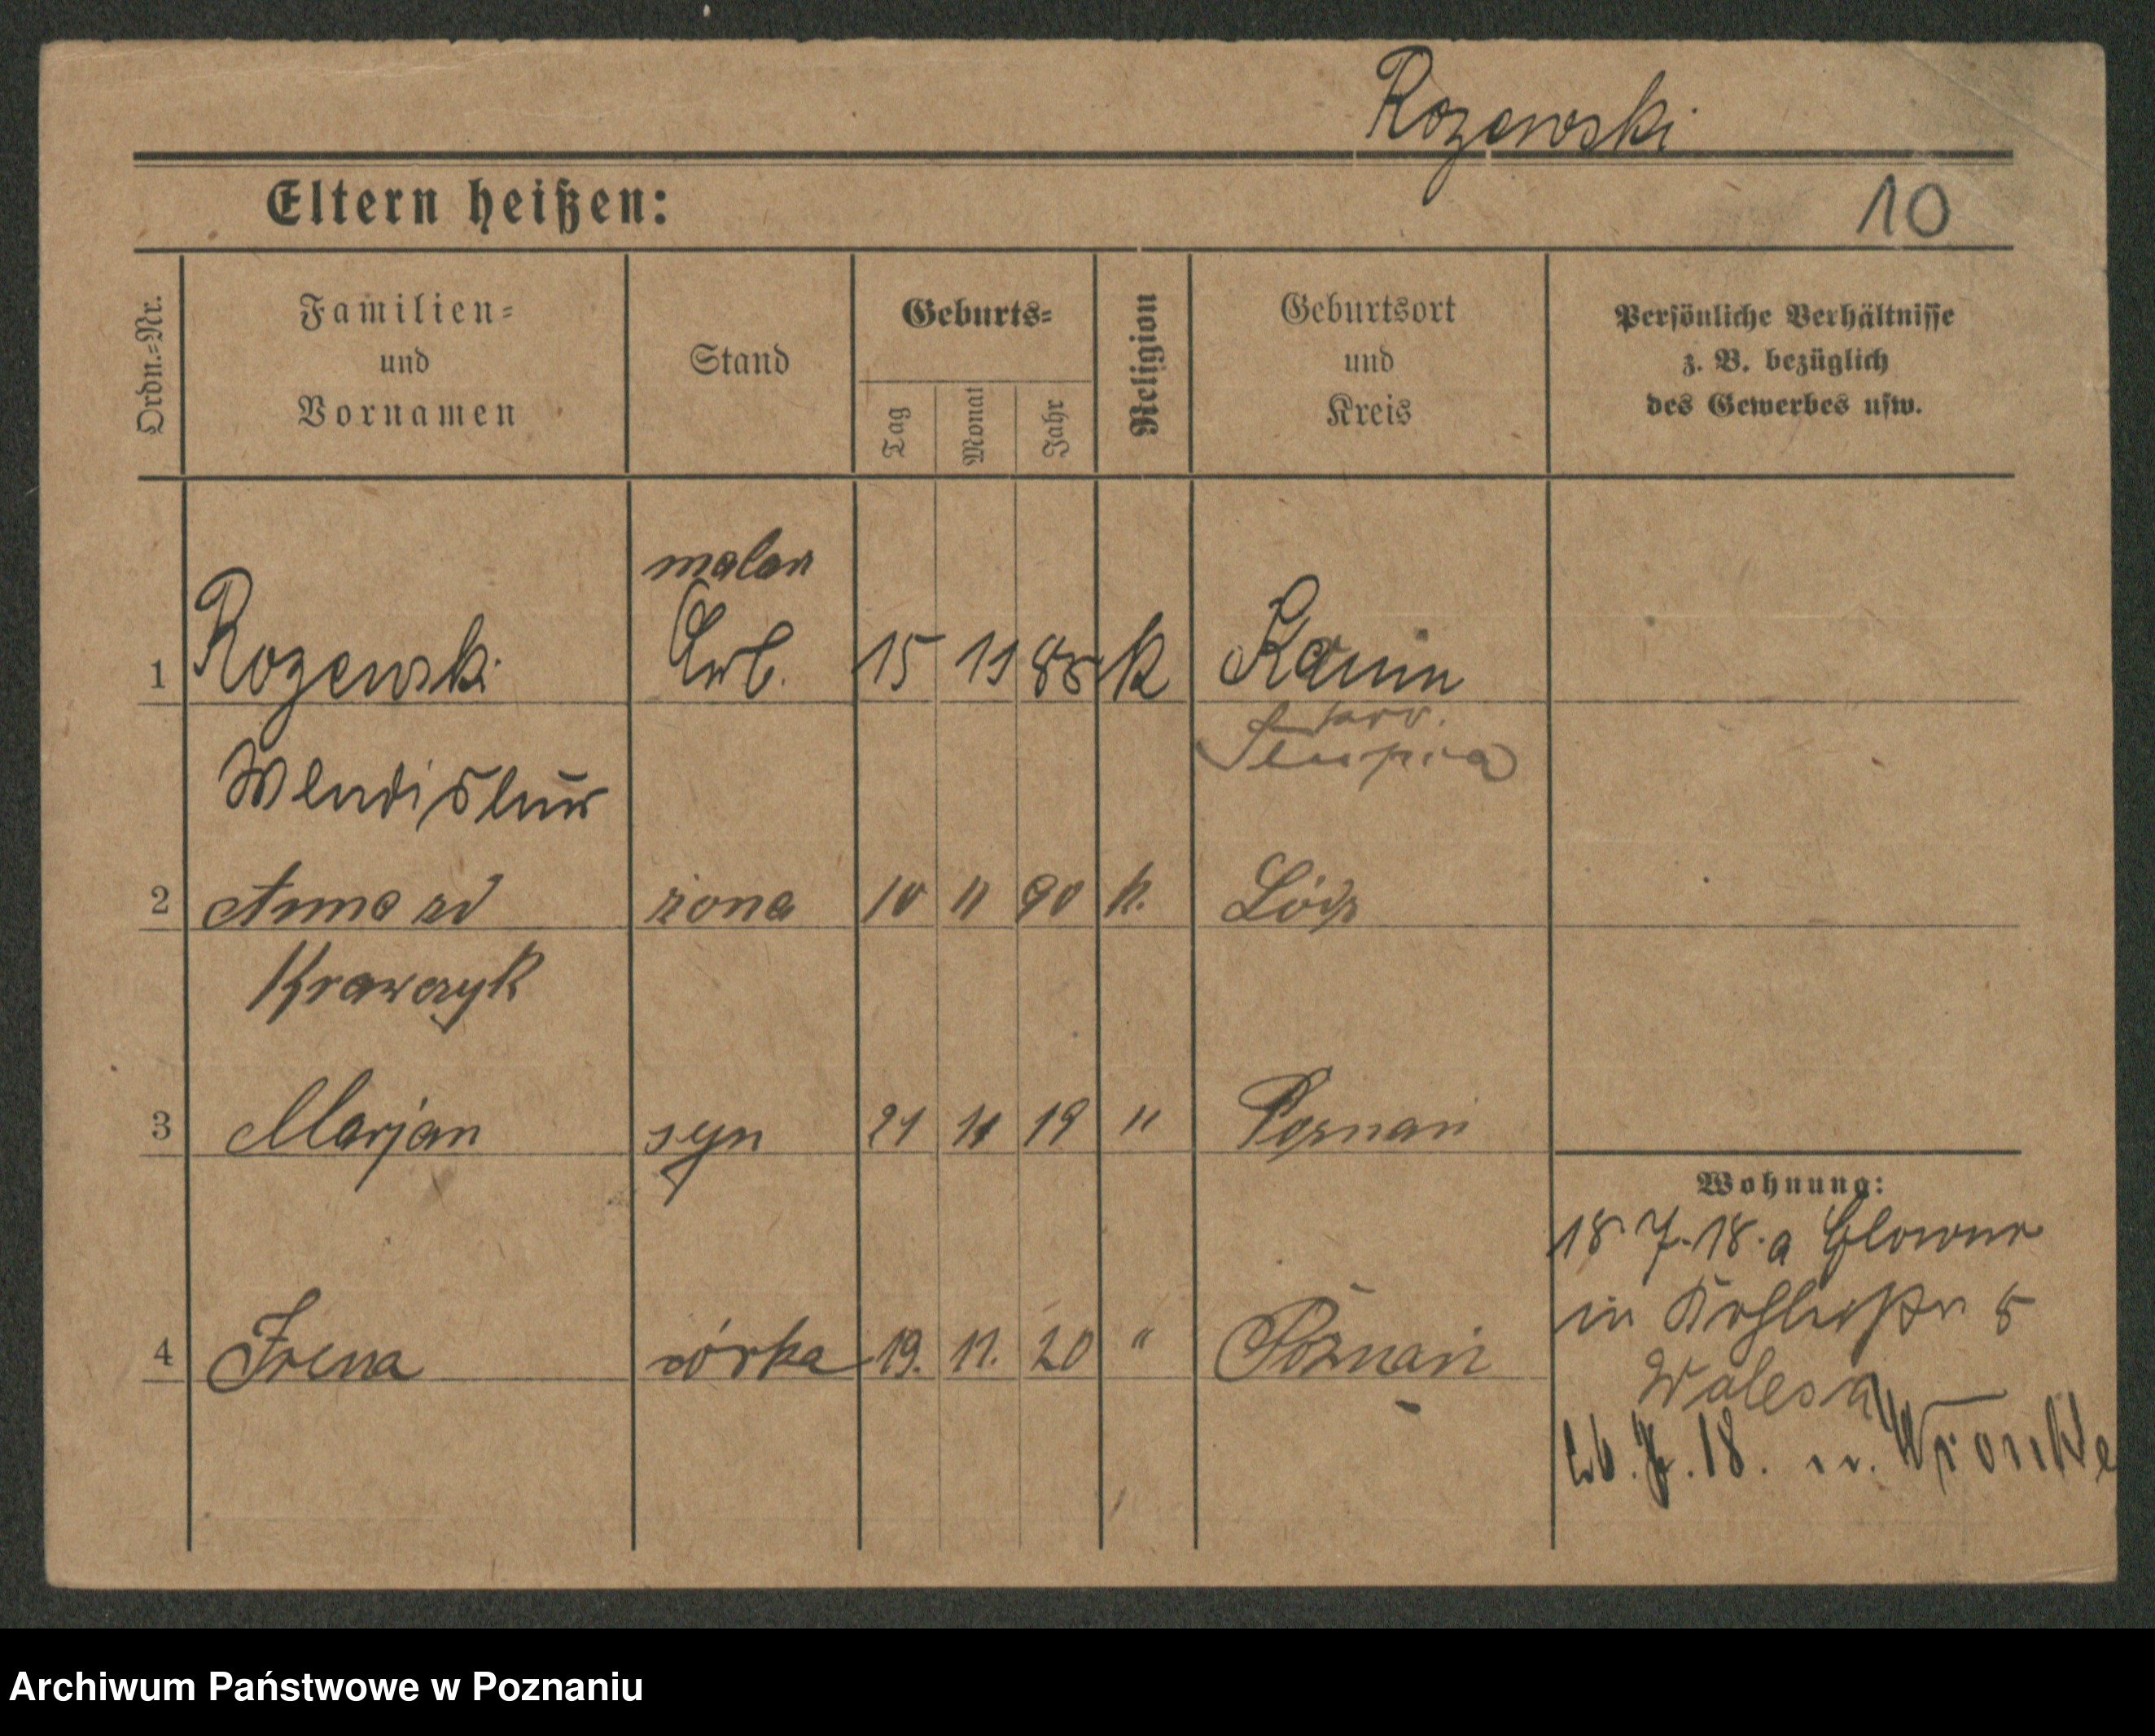 Rozewski
Eltern heißen:
10
Ordn.-Nr.
Familien-
und
Vornamen
Stand
Geburts-
Tag
Monat
Jahr
Religion
Geburtsort
und
Kreis
Persönliche Verhältnisse
z. B. bezüglich
des Gewerbes usw.
malar
1 Rozewski Arb. 15 11 85 k
Wladislaus
2 Anna zd żona 10 11 90 k. Łódz
Krawczyk
3 Marjan syn 21 11 19 " Poznań
Wohnung:
18.7.18. a Glowno
4 Irena córka 19. 11. 20 " Poznań
in 5
Walesa
Wronke
Archiwum Państwowe w Poznaniu